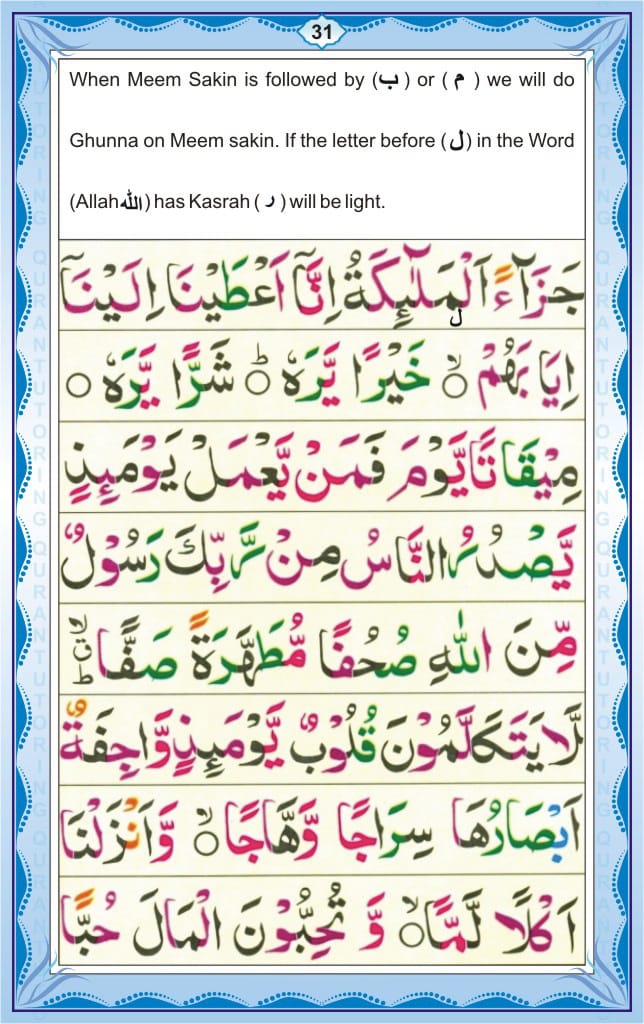 31
When Meem Sakin is followed by (ب) or (م) we will do
Ghunna on Meem sakin. If the letter before (ل) in the Word
(Allah الله) has Kasrah (ر) will be light.
جَزَآءً اَلْمَلٰٓئِكَةُ اِنَّآ اَعْطَيْنَا اِلَيْنَآ
ل
اِيَا بَهُمْ ۙ○ خَيْرًا يَّرَهٗ ○ؕ شَرًّا يَّرَهٗ ○
مِيْقَاتًا يَّوْمَ فَمَنْ يَّعْمَلْ يَوْمَئِذٍ
يَّصْدُرُ النَّاسُ مِنْ رَّبِّكَ رَسُوْلٌ
مِّنَ اللّٰهِ صُحُفًا مُّطَهَّرَةً صَفًّا
لَّا يَتَكَلَّمُوْنَ قُلُوْبٌ يَّوْمَئِذٍ وَّاجِفَةٌ
اَبْصَارُهَا سِرَاجًا وَّهَّاجًا ۙ○ وَّاَنْزَلْنَا
اَكْلًا لَّمًّا ۙ○ وَّ تُحِبُّوْنَ الْمَالَ حُبًّا
QURAN TUTORING QURAN TUTORING
QURAN TUTORING QURAN TUTORING